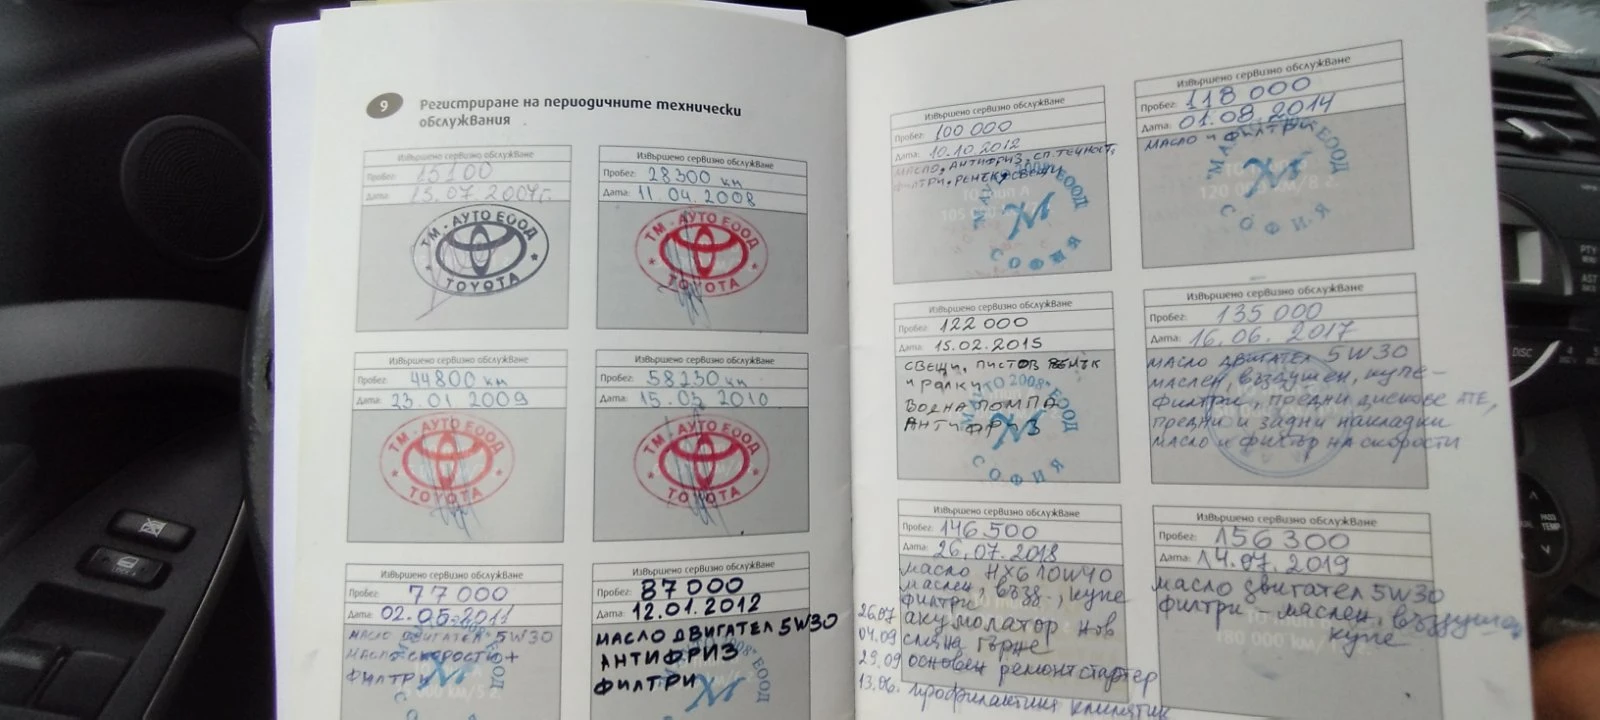 9 Регистриране на периодичните технически
обслужвания
Извършено сервизно обслужване
Пробег: 15100
Дата: 13.07.2007г.
ТМ - АУТО ЕООД
TOYOTA
Извършено сервизно обслужване
Пробег: 28300 км
Дата: 11.04.2008
ТМ - АУТО ЕООД
TOYOTA
Извършено сервизно обслужване
Пробег: 44800 км
Дата: 23.01 2009
ТМ - АУТО ЕООД
TOYOTA
Извършено сервизно обслужване
Пробег: 58230 км
Дата: 15.03 2010
ТМ - АУТО ЕООД
TOYOTA
Извършено сервизно обслужване
Пробег: 77000
Дата: 02.05.2011
МАСЛО ДВИГАТЕЛ 5W30
МАСЛО СКОРОСТИ +
ФИЛТРИ
Извършено сервизно обслужване
Пробег: 87000
Дата: 12.01.2012
МАСЛО ДВИГАТЕЛ 5W30
АНТИФРИЗ
ФИЛТРИ
ЕООД
Извършено сервизно обслужване
Пробег: 100 000
Дата: 10.10.2012
МАСЛО, АНТИФРИЗ, СП. ТЕЧНОСТ,
ФИЛТРИ, РЕМЪК, СВЕЩИ
ЕООД
СОФИЯ
Извършено сервизно обслужване
Пробег: 118 000
Дата: 01.08.2014
МАСЛО И ФИЛТРИ
ЕООД
СОФИЯ
Извършено сервизно обслужване
Пробег: 122 000
Дата: 15.02.2015
СВЕЩИ, ПИСТОВ РЕМЪК
И РОЛКИ
ВОДНА ПОМПА
АНТИФРИЗ
2008" ЕООД
СОФИЯ
Извършено сервизно обслужване
Пробег: 135 000
Дата: 16.06.2017
МАСЛО ДВИГАТЕЛ 5W30
МАСЛЕН, ВЪЗДУШЕН, КУПЕ-
ФИЛТРИ, ПРЕДНИ ДИСКОВЕ ATE,
ПРЕДНИ И ЗАДНИ НАКЛАДКИ
МАСЛО И ФИЛТЪР НА СКОРОСТИ
Извършено сервизно обслужване
Пробег: 146500
Дата: 26.07.2018
масло HX6 10W40
маслен, възд-, купе
филтри
26.07 акумолатор нов
04.09 смяна гърне
29.09 основен ремонт стартер
13.06. профилактика климатик
Извършено сервизно обслужване
Пробег: 156300
Дата: 14.07.2019
масло двигател 5W30
филтри - маслен, въздушен
купе
180 000
DISC
TEMP